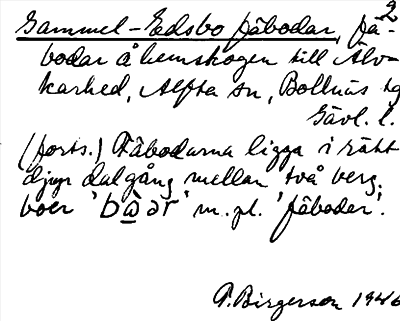 2
Gammel-Edsbo fäbodar, fä-
bodar å hemskogen till Älv-
karhed, Alfta sn, Bollnäs tg
Gävl. l.
(forts.) Fäbodarna ligga i rätt
djup dalgång mellan två berg.
boer 'bòər' m. pl. 'fäboder'.
P. Birgerson 1946